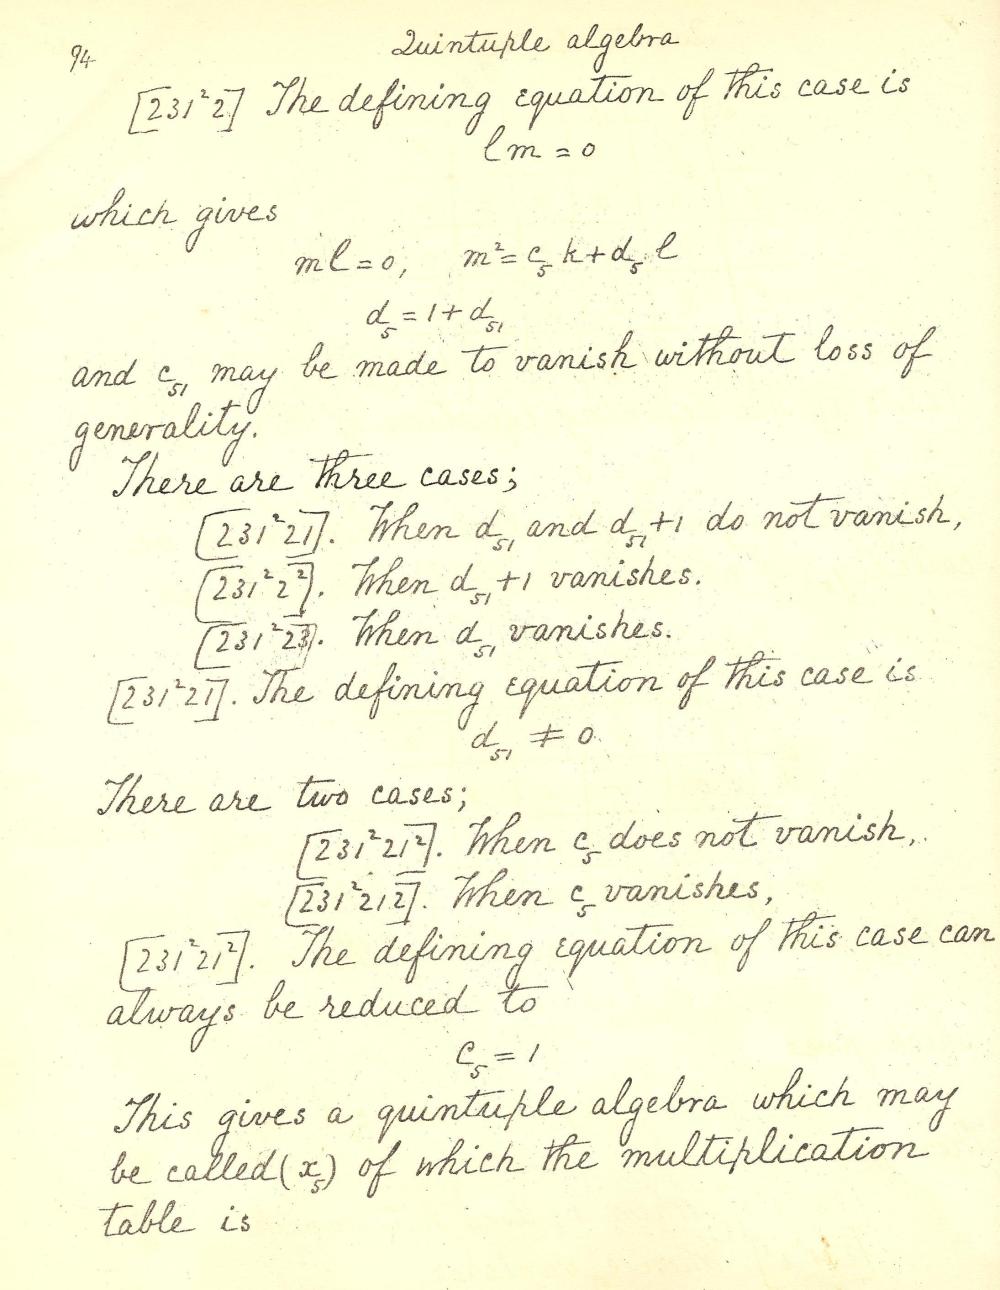 94 Quintuple algebra
[231²2] The defining equation of this case is
lm = 0
which gives
ml = 0, m² = c₅ k + d₅ l
d₅ = 1 + d₅₁
and c₅₁ may be made to vanish without loss of
generality.
There are three cases;
[231²21]. When d₅₁ and d₅₁+1 do not vanish,
[231²2²]. When d₅₁+1 vanishes.
[231²23]. When d₅₁ vanishes.
[231²21]. The defining equation of this case is
d₅₁ ≠ 0
There are two cases;
[231²21²]. When c₅ does not vanish,
[231²212]. When c₅ vanishes,
[231²21²]. The defining equation of this case can
always be reduced to
c₅ = 1
This gives a quintuple algebra which may
be called (x₅) of which the multiplication
table is